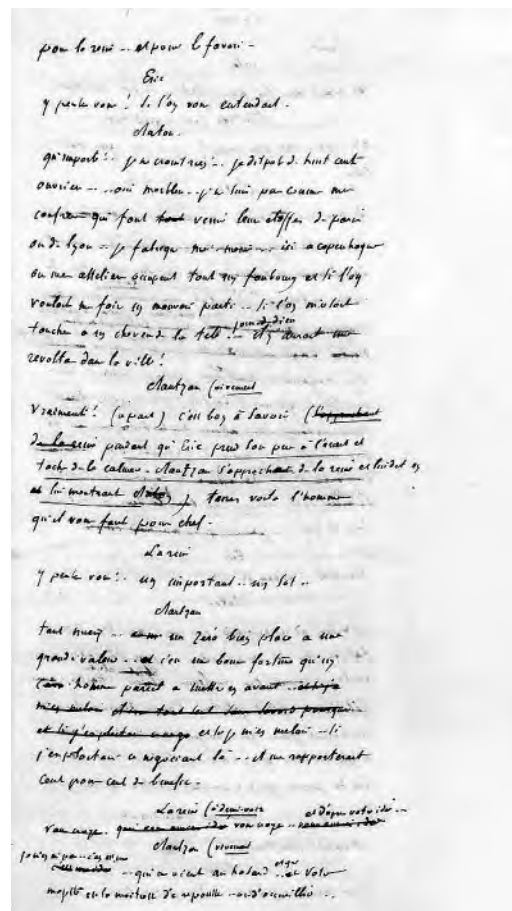 pour la reine -- et pour le favori -
Eric
y pensez vous ! Si l'on vous entendait.
Raton.
qu'importe !.. je ne crains rien .. je dispose de huit cents
ouvriers -- .. oui morbleu .. je ne suis pas comme mes
confreres qui font venir leurs etoffes de paris
ou de lyon -- je fabrique moi-meme .. ici a copenhague
ou mes atteliers occupent tout un faubourg et si l'on
voulait me faire un mauvais parti .. si l'on m'osait
toucher a un cheveu de la tete !.. jour de dieu
revolte dans la ville !
Rantzau (vivement
Vraiment ! (a part) c'est bon à savoir (l'approchant
de la reine pendant qu'Eric prend son pere à l'ecart et
tache de le calmer. Rantzau s'approchant de la reine et lui dit en
lui montrant Raton) tenez voila l'homme
qu'il vous faut pour chef -
La reine
y pensez vous !.. un important .. un sot ..
Rantzau
tant mieux .. un zero bien placé a une
grande valeur .. c'est une bonne fortune qu'un
homme pareil a mettre en avant
et si je m'en melais -- si
j'exploitais ce negociant là -- il me rapporterait
cent pour cent de benefice -
La reine (à demi-voix
vous croyez
Rantzau (vivement
-- qui on vient au hasard et votre
majesté est la maitresse de repousser ou d'accueillir ..